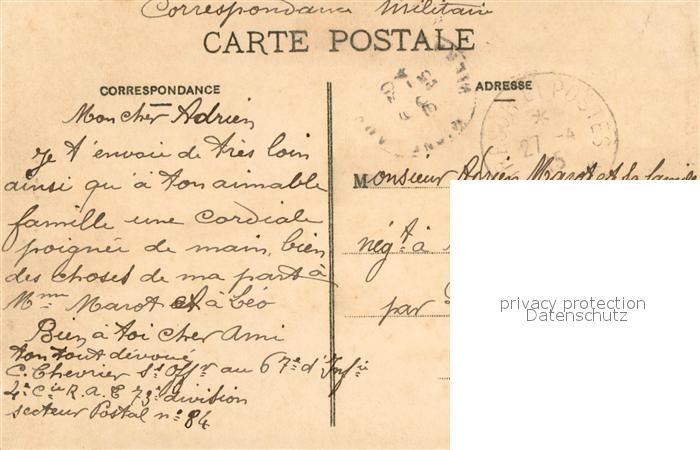 Correspondance Militaire
CARTE POSTALE
CORRESPONDANCE
ADRESSE
Mon cher Adrien
Je t'envoie de très loin
ainsi qu'à ton aimable
famille une cordiale
poignée de main, bien
des choses de ma part à
Mme Marot et à Léo
Bien à toi cher Ami
ton tout dévoué
C. Chevrier St Offr au 67e d'Infie
4e Cie R.A.T 73e division
secteur Postal n° 84
ET POSTES
27 -4
Monsieur Adrien Marot et sa famille
négt à
par
privacy protection
Datenschutz